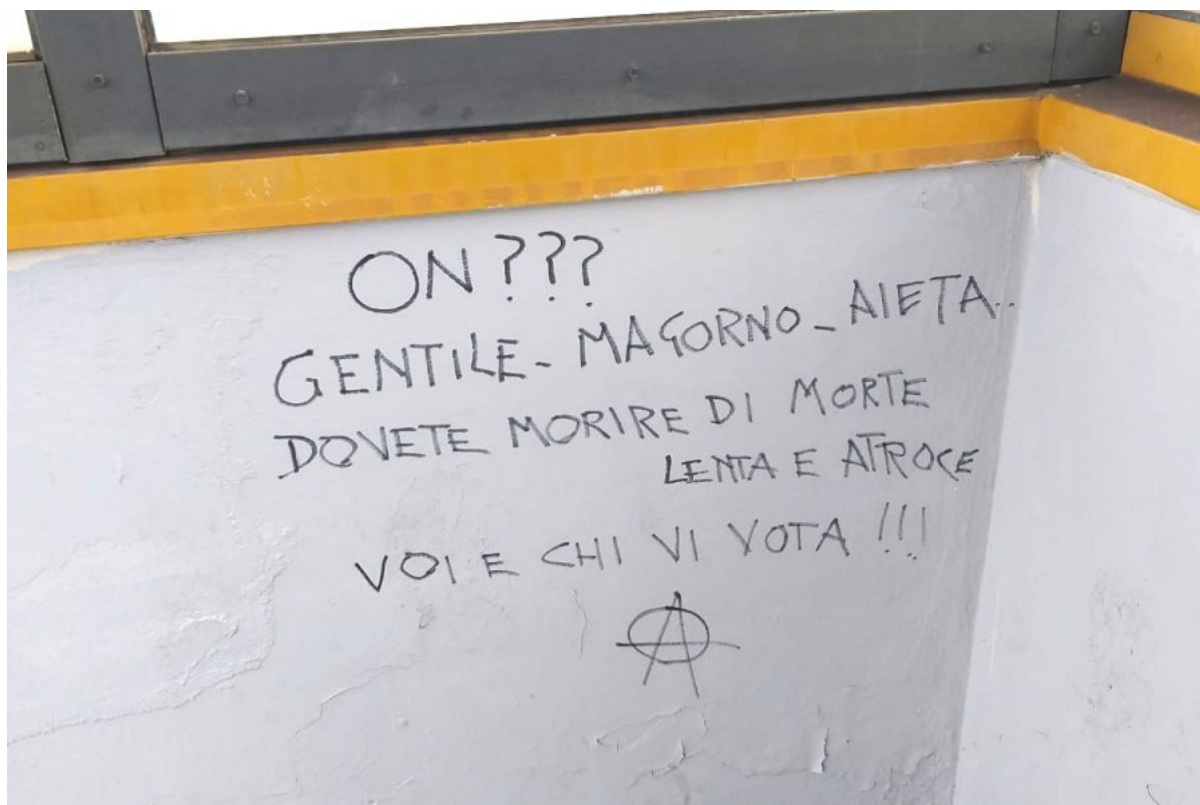 ON???
GENTILE - MAGORNO - AIETA..
DOVETE MORIRE DI MORTE
LENTA E ATROCE
VOI E CHI VI VOTA!!!